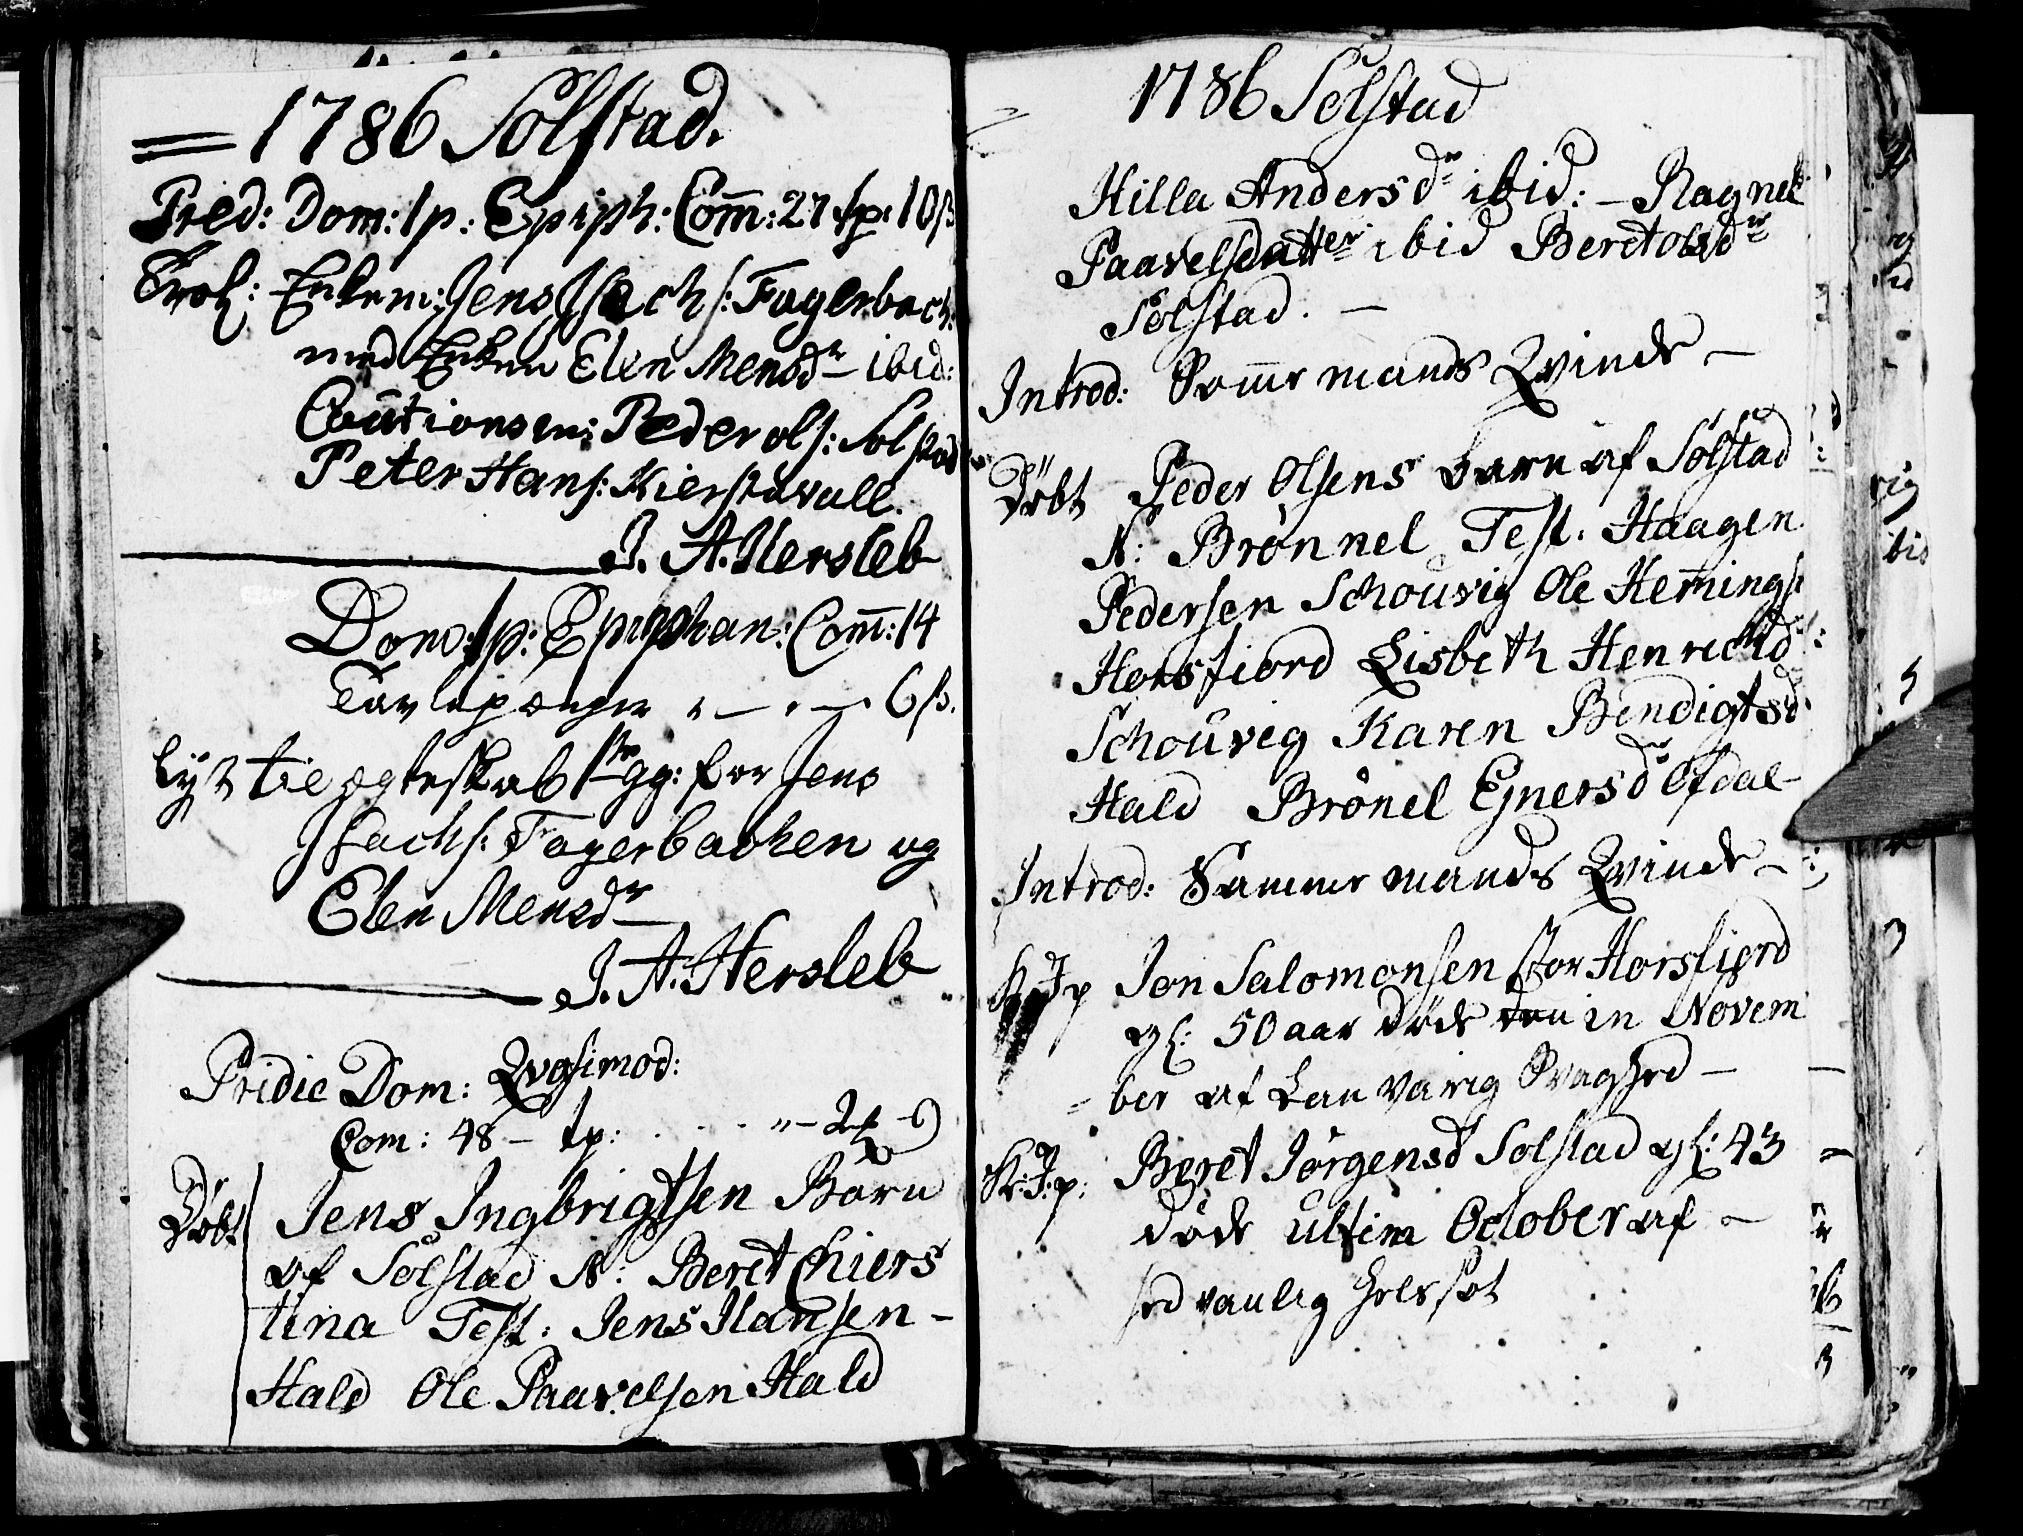 1786 Solstad.
Pred: Dom: 1 p: Epiph: Com̄: 27 tp: 10ß
Trol: Enkem: Jens Isachs: Fagerbach:
med Enken Elen Mensdr ibid:
Cautionsm: Peder ols: Solstad
Peter Hans: Kierstavall.
J. A. Hersleb
Dom: 1 p: Epiphan: Com̄: 14
Tavlepænger 6ß.
Lyst til ægteskab 1ste gg: for Jens
Isachs: Fagerbachen og
Elen Mensdr
J. A. Hersleb
Pridie Dom: Qvasimod:
Com: 48 – tp:
Döbt Jens Ingbrigtsen Barn
af Sölstad N: Beret Chiers
tina Test: Jens Hansen –
Hald Ole Paavelsen Hald
1786 Sölstad
Hilla Andersdr ibid: – Ragnel
Paavelsdatter ibid Beret olsdr
Sölstad. –
Introd: Sam̄e mands Qvinde –
Döbt Peder Olsens barn af Sölstad
N: Brönnel Test: Haagen
Pedersen Schouvig Ole Hem̄ings:
Horsfiord Lisbeth Henrichsd:
Schouvig Karen Bendigtsd
Hald Brönel Ejnersdr Ofdal –
Introd: Samme mands Qvinde –
Jon Salomonsen Stor Horsfjord
gl: 50 aar döde den in Novem
ber af Lanvarig Svaghed –
Sk: J: p: Beret Jörgensd Solstad gl: 43
döde ultim October af –
sedvanlig